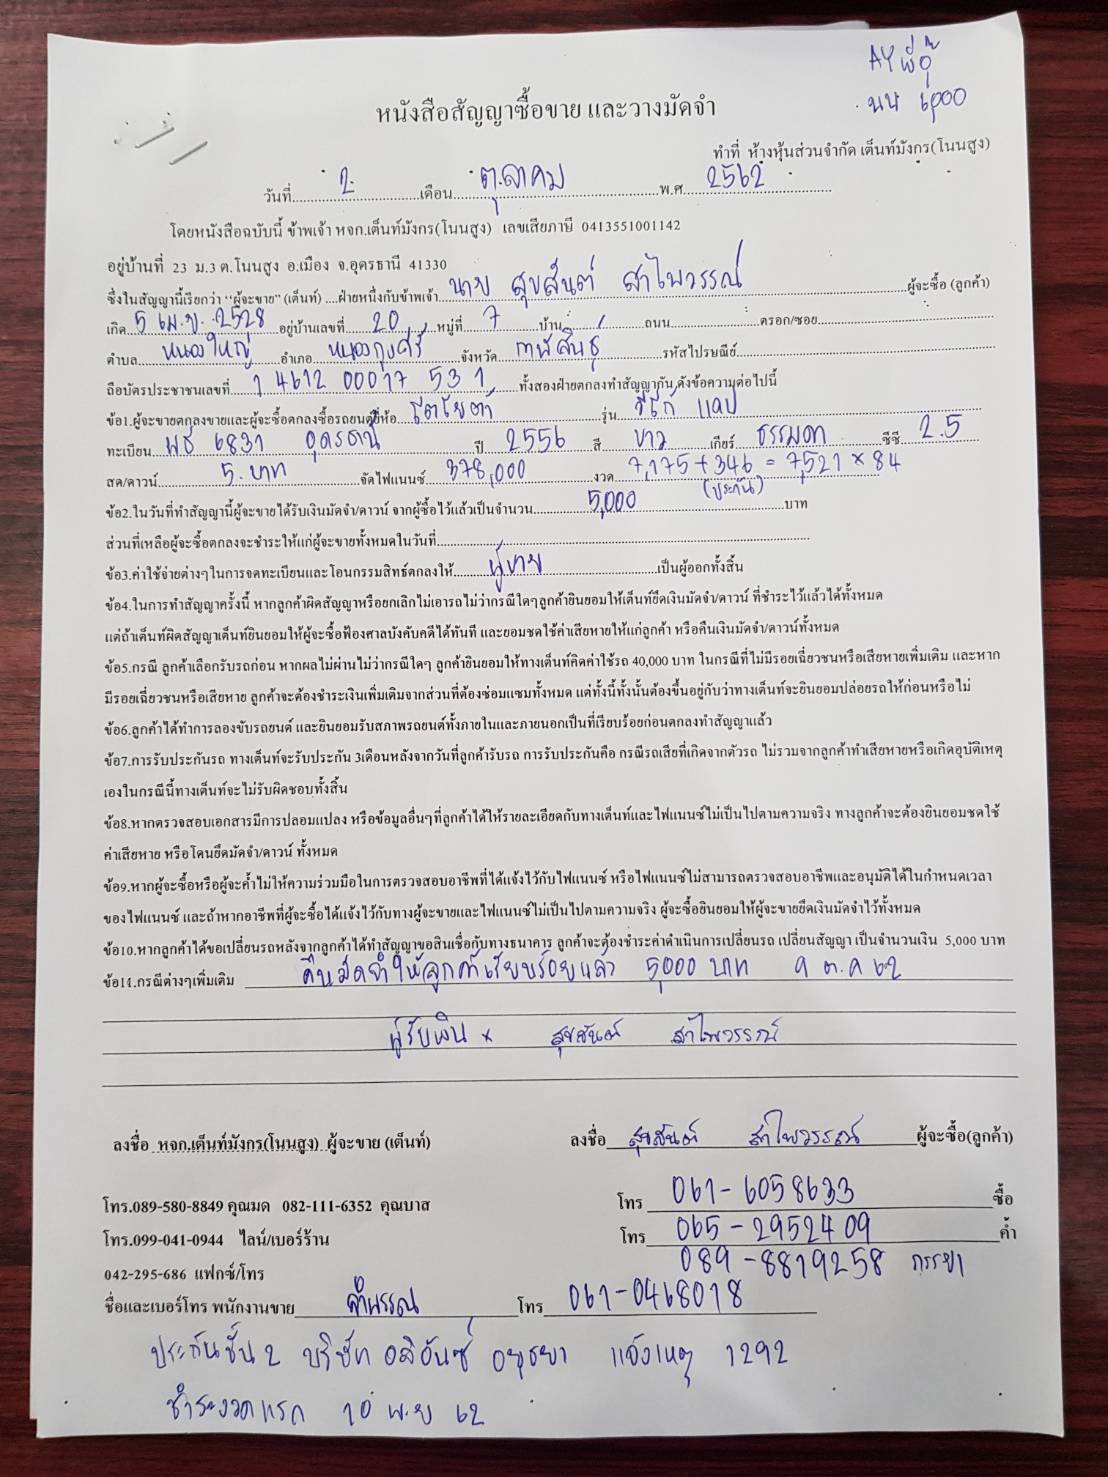 AY พี่อู๊
นน 6,000
หนังสือสัญญาซื้อขาย และวางมัดจำ
ทำที่ ห้างหุ้นส่วนจำกัด เต็นท์มังกร(โนนสูง)
วันที่ 2 เดือน ตุลาคม พ.ศ 2562
โดยหนังสือฉบับนี้ ข้าพเจ้า หจก.เต็นท์มังกร(โนนสูง) เลขเสียภาษี 0413551001142
อยู่บ้านที่ 23 ม.3 ต.โนนสูง อ.เมือง จ.อุดรธานี 41330
ซึ่งในสัญญานี้เรียกว่า “ผู้จะขาย” (เต็นท์) ....ฝ่ายหนึ่งกับข้าพเจ้า นาย สุขสันต์ สำไพวรรณ์ ผู้จะซื้อ (ลูกค้า)
เกิด 5 เม.ย. 2528 อยู่บ้านเลขที่ 20 หมู่ที่ 7 บ้าน ถนน ตรอก/ซอย
ตำบล หนองใหญ่ อำเภอ หนองกุงศรี จังหวัด กาฬสินธุ์ รหัสไปรษณีย์
ถือบัตรประชาชนเลขที่ 1 4612 00017 53 1 ทั้งสองฝ่ายตกลงทำสัญญากัน ดังข้อความต่อไปนี้
ข้อ1.ผู้จะขายตกลงขายและผู้จะซื้อตกลงซื้อรถยนต์ยี่ห้อ โตโยต้า รุ่น วีโก้ แคป
ทะเบียน ผธ 6831 อุดรธานี ปี 2556 สี ขาว เกียร์ ธรรมดา ซีซี 2.5
สด/ดาวน์ 5. บาท จัดไฟแนนซ์ 378,000 งวด 7,175 + 346 = 7,521 × 84
(ประกัน)
ข้อ2.ในวันที่ทำสัญญานี้ผู้จะขายได้รับเงินมัดจำ/ดาวน์ จากผู้ซื้อไว้แล้วเป็นจำนวน 5,000 บาท
ส่วนที่เหลือผู้จะซื้อตกลงจะชำระให้แก่ผู้จะขายทั้งหมดในวันที่
ข้อ3.ค่าใช้จ่ายต่างๆในการจดทะเบียนและโอนกรรมสิทธ์ตกลงให้ ผู้ขาย เป็นผู้ออกทั้งสิ้น
ข้อ4.ในการทำสัญญาครั้งนี้ หากลูกค้าผิดสัญญาหรือยกเลิกไม่เอารถไม่ว่ากรณีใดๆลูกค้ายินยอมให้เต็นท์ยึดเงินมัดจำ/ดาวน์ ที่ชำระไว้แล้วได้ทั้งหมด
แต่ถ้าเต็นท์ผิดสัญญาเต็นท์ยินยอมให้ผู้จะซื้อฟ้องศาลบังคับคดีได้ทันที และยอมชดใช้ค่าเสียหายให้แก่ลูกค้า หรือคืนเงินมัดจำ/ดาวน์ทั้งหมด
ข้อ5.กรณี ลูกค้าเลือกรับรถก่อน หากผลไม่ผ่านไม่ว่ากรณีใดๆ ลูกค้ายินยอมให้ทางเต็นท์คิดค่าใช้รถ 40,000 บาท ในกรณีที่ไม่มีรอยเฉี่ยวชนหรือเสียหายเพิ่มเติม และหาก
มีรอยเฉี่ยวชนหรือเสียหาย ลูกค้าจะต้องชำระเงินเพิ่มเติมจากส่วนที่ต้องซ่อมแซมทั้งหมด แต่ทั้งนี้ทั้งนั้นต้องขึ้นอยู่กับว่าทางเต็นท์จะยินยอมปล่อยรถให้ก่อนหรือไม่
ข้อ6.ลูกค้าได้ทำการลองขับรถยนต์ และยินยอมรับสภาพรถยนต์ทั้งภายในและภายนอกเป็นที่เรียบร้อยก่อนตกลงทำสัญญาแล้ว
ข้อ7.การรับประกันรถ ทางเต็นท์จะรับประกัน 3เดือนหลังจากวันที่ลูกค้ารับรถ การรับประกันคือ กรณีรถเสียที่เกิดจากตัวรถ ไม่รวมจากลูกค้าทำเสียหายหรือเกิดอุบัติเหตุ
เองในกรณีนี้ทางเต็นท์จะไม่รับผิดชอบทั้งสิ้น
ข้อ8.หากตรวจสอบเอกสารมีการปลอมแปลง หรือข้อมูลอื่นๆที่ลูกค้าได้ให้รายละเอียดกับทางเต็นท์และไฟแนนซ์ไม่เป็นไปตามความจริง ทางลูกค้าจะต้องยินยอมชดใช้
ค่าเสียหาย หรือโดนยึดมัดจำ/ดาวน์ ทั้งหมด
ข้อ9.หากผู้จะซื้อหรือผู้จะค้ำไม่ให้ความร่วมมือในการตรวจสอบอาชีพที่ได้แจ้งไว้กับไฟแนนซ์ หรือไฟแนนซ์ไม่สามารถตรวจสอบอาชีพและอนุมัติได้ในกำหนดเวลา
ของไฟแนนซ์ และถ้าหากอาชีพที่ผู้จะซื้อได้แจ้งไว้กับทางผู้จะขายและไฟแนนซ์ไม่เป็นไปตามความจริง ผู้จะซื้อยินยอมให้ผู้จะขายยึดเงินมัดจำไว้ทั้งหมด
ข้อ10.หากลูกค้าได้ขอเปลี่ยนรถหลังจากลูกค้าได้ทำสัญญาขอสินเชื่อกับทางธนาคาร ลูกค้าจะต้องชำระค่าดำเนินการเปลี่ยนรถ เปลี่ยนสัญญา เป็นจำนวนเงิน 5,000 บาท
ข้อ11.กรณีต่างๆเพิ่มเติม คืนมัดจำให้ลูกค้าเรียบร้อยแล้ว 5,000 บาท 9 ต.ค 62
ผู้รับเงิน x สุขสันต์ สำไพวรรณ์
ลงชื่อ หจก.เต็นท์มังกร(โนนสูง) ผู้จะขาย (เต็นท์) ลงชื่อ สุขสันต์ สำไพวรรณ์ ผู้จะซื้อ(ลูกค้า)
โทร.089-580-8849 คุณมด 082-111-6352 คุณบาส โทร 061-6058633 ซื้อ
โทร.099-041-0944 ไลน์/เบอร์ร้าน โทร 065-2952409 ค้ำ
042-295-686 แฟกซ์/โทร 089-8819258 ภรรยา
ชื่อและเบอร์โทร พนักงานขาย คำพรรณ โทร 061-0468018
ประกันชั้น 2 บริษัท อลิอันซ์ อยุธยา แจ้งเหตุ 1292
ชำระงวดแรก 10 พ.ย 62